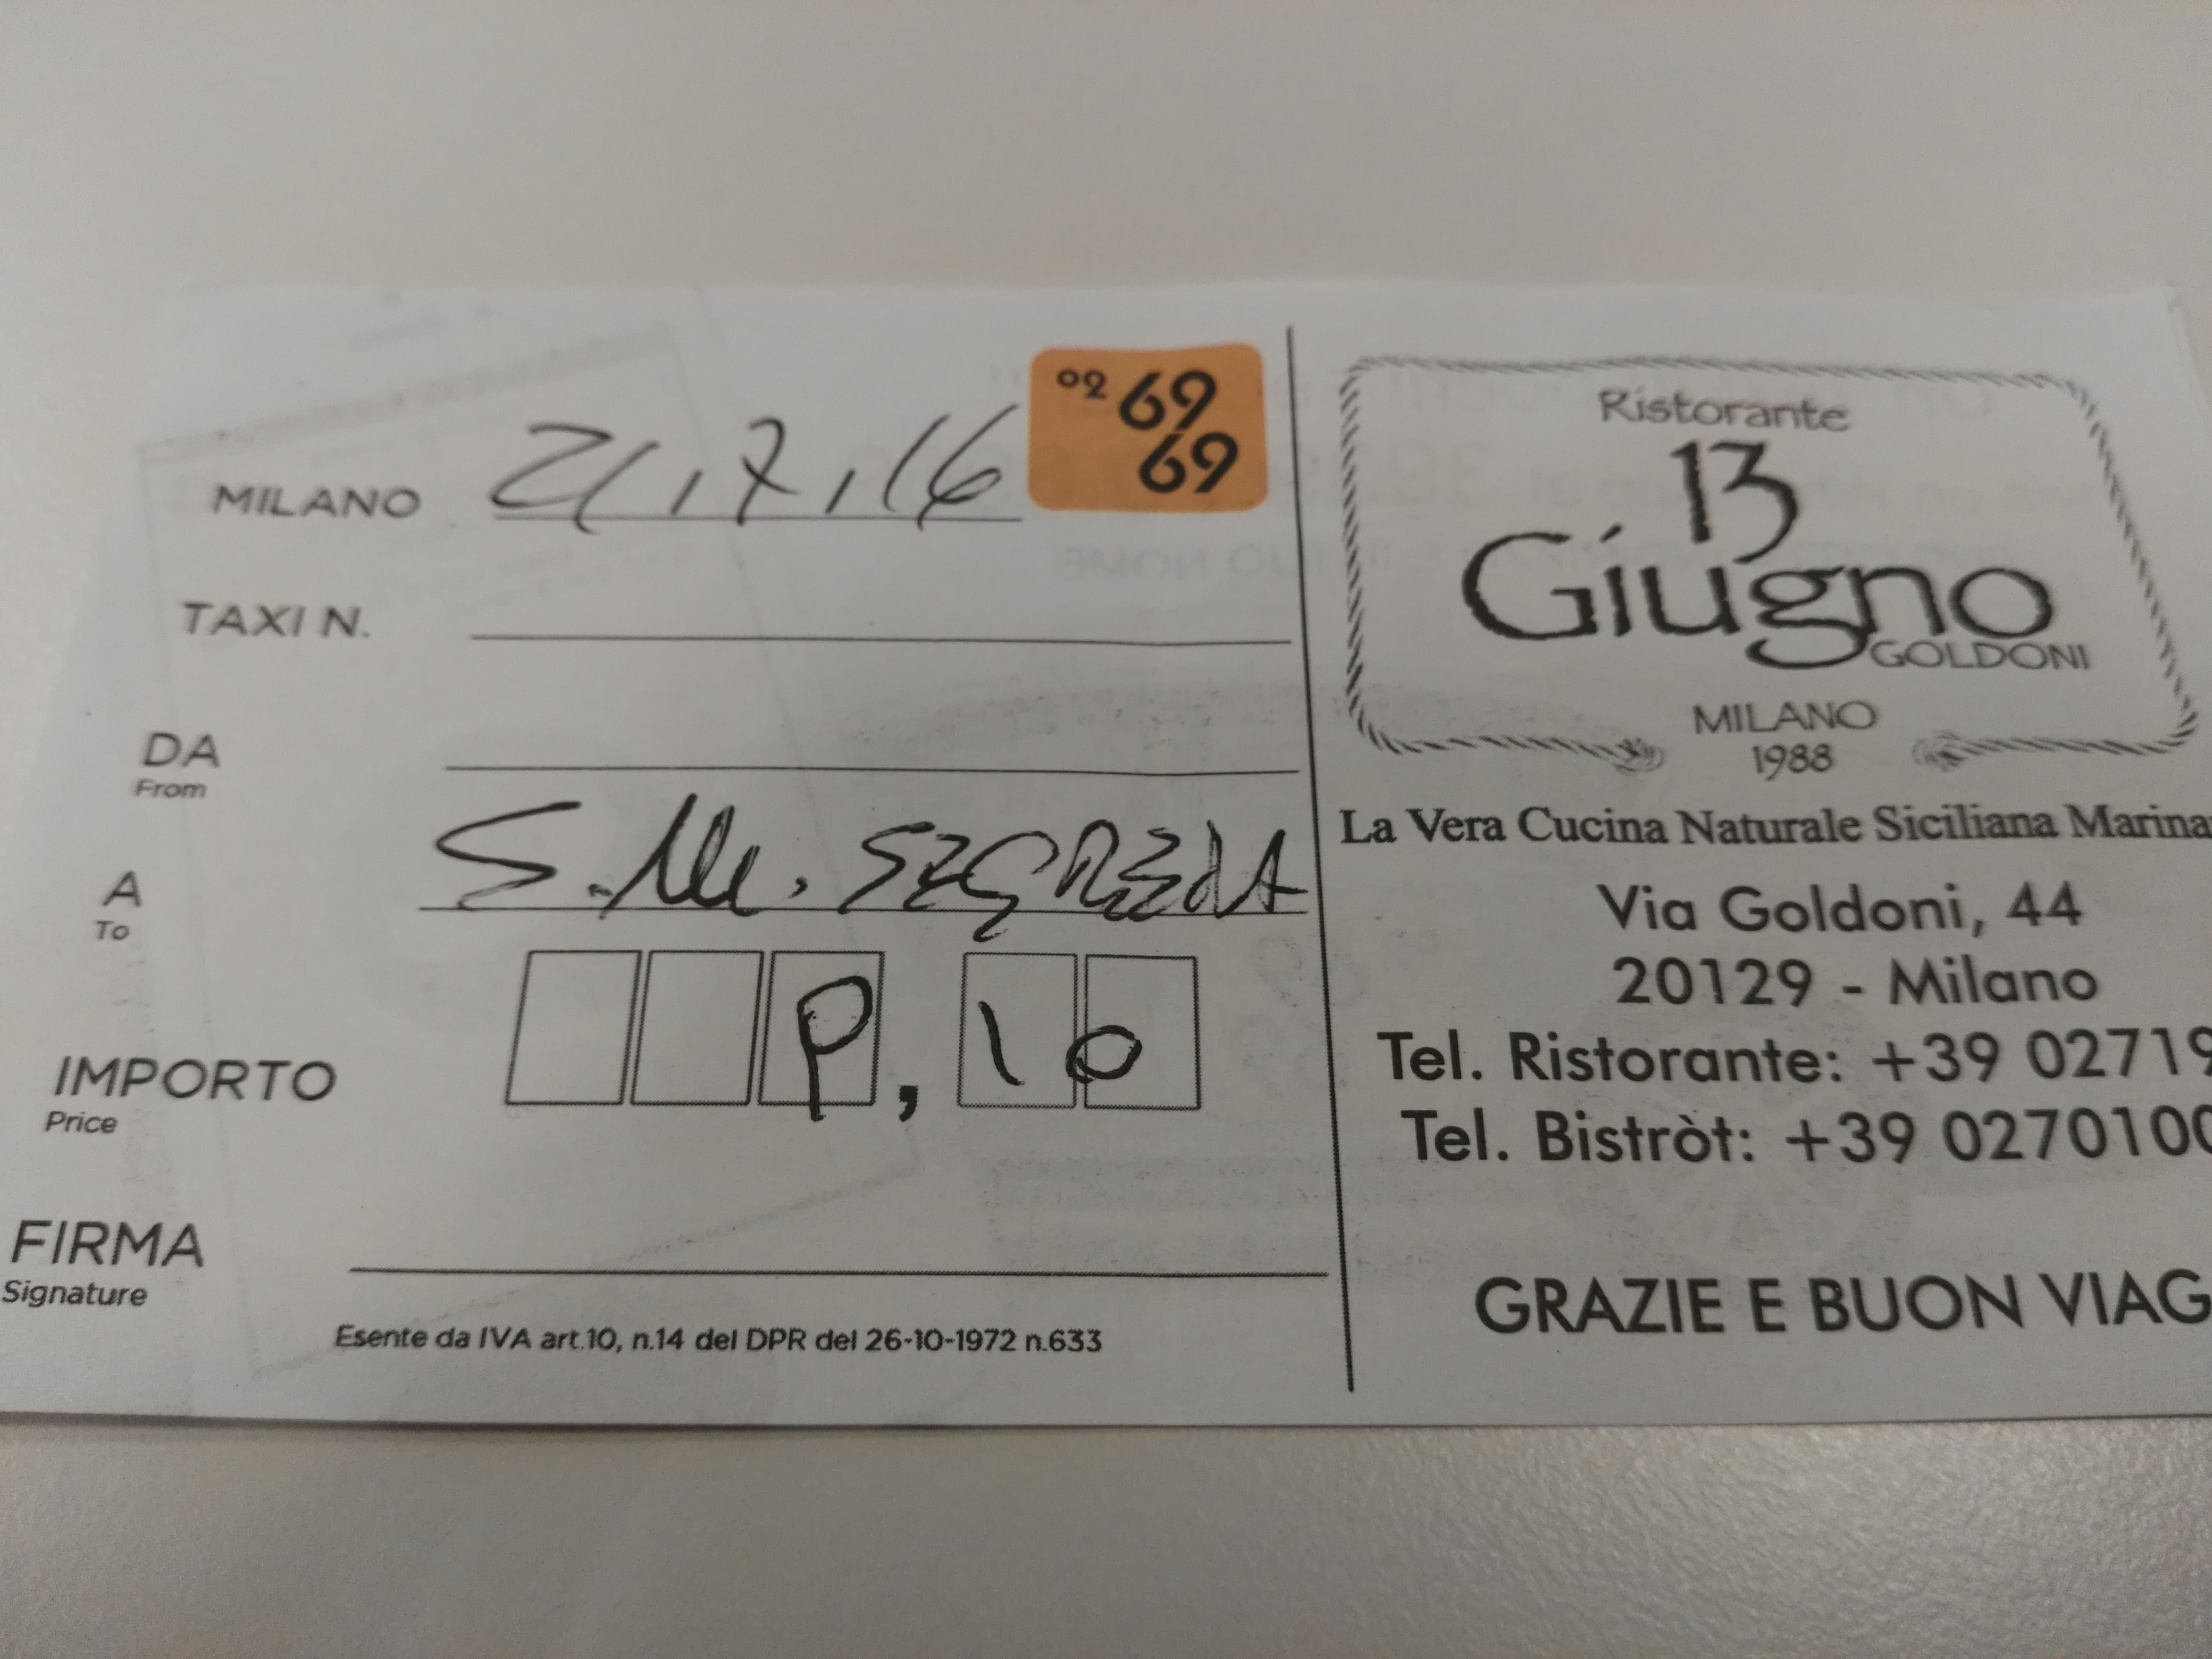 MILANO 21,7,16
02 69
69
TAXI N.
DA
From
A S.M. SEGRETA
To
IMPORTO 9,10
Price
FIRMA
Signature
Esente da IVA art.10, n.14 del DPR del 26-10-1972 n.633
Ristorante
13
Giugno
GOLDONI
MILANO
1988
La Vera Cucina Naturale Siciliana Marina
Via Goldoni, 44
20129 - Milano
Tel. Ristorante: +39 02719
Tel. Bistròt: +39 0270100
GRAZIE E BUON VIAG